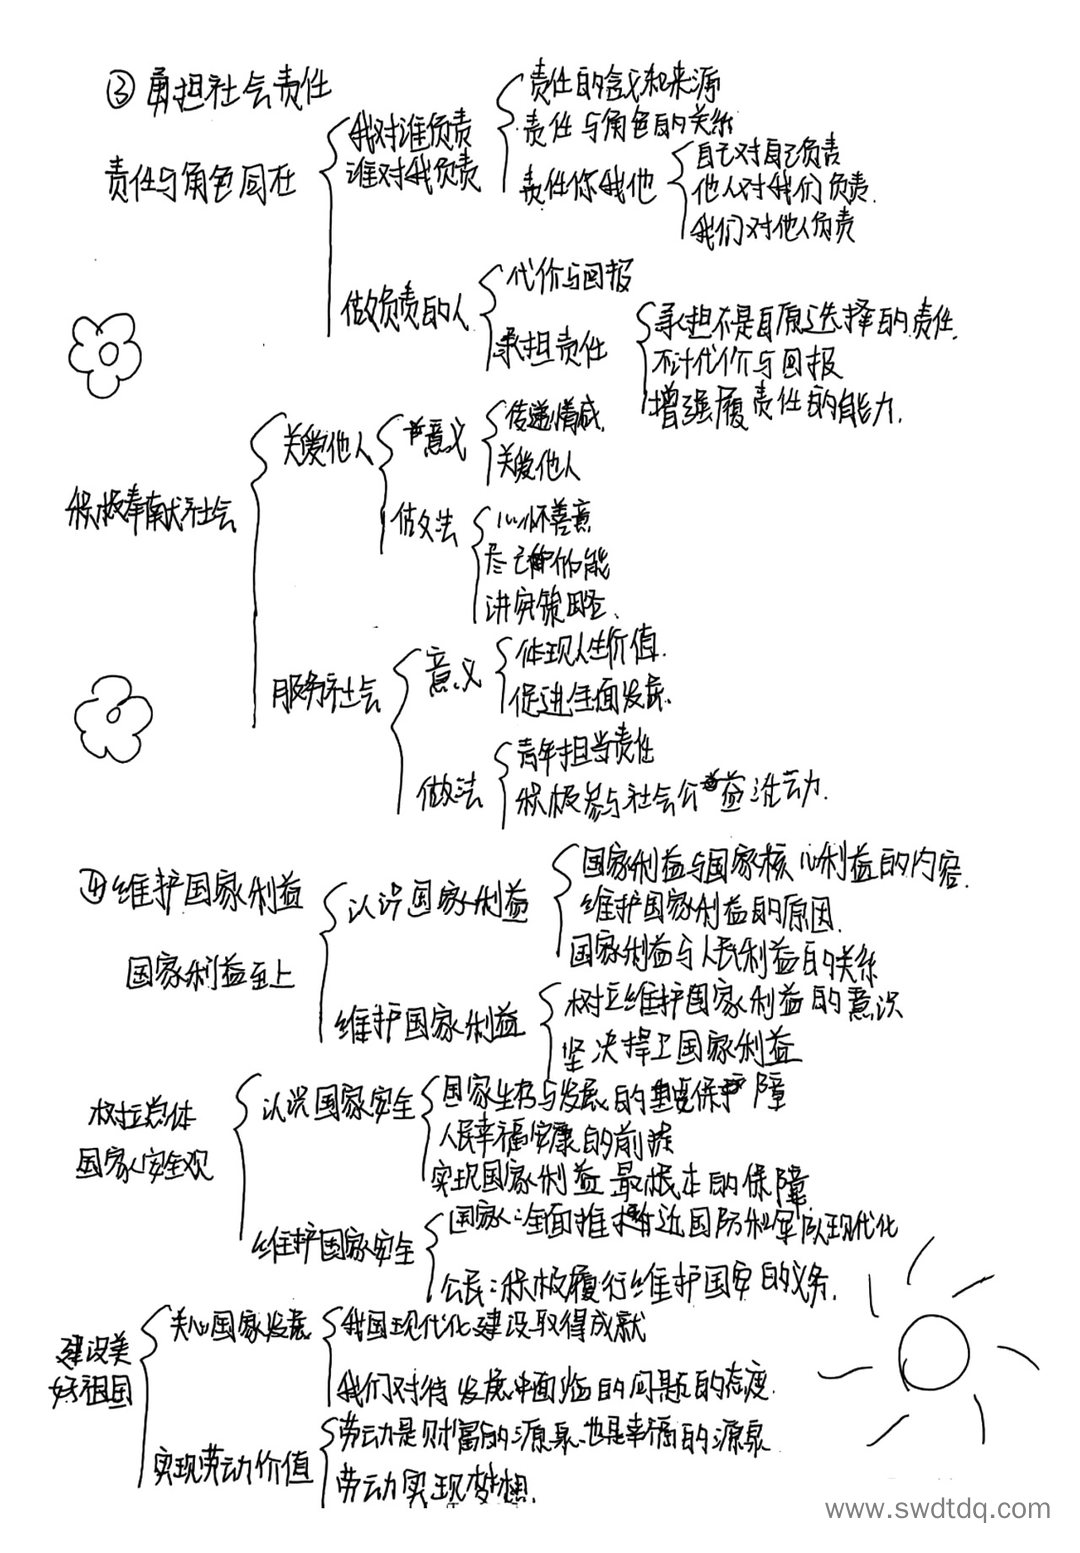 ③勇担社会责任
责任与角色同在
我对谁负责
谁对我负责
责任的含义和来源
责任与角色的关系
责任你我他
自己对自己负责
他人对我们负责.
我们对他人负责
做负责的人
代价与回报
承担责任
承担不是自愿选择的责任.
不计代价与回报
增强履责任的能力.
积极奉献社会
关爱他人
意义
传递情感.
关爱他人
做法
心怀善意
尽己所能
讲究策略.
服务社会
意义
体现人生价值.
促进全面发展.
做法
青年担当责任
积极参与社会公益活动.
④维护国家利益
国家利益至上
认识国家利益
国家利益与国家核心利益的内容.
维护国家利益的原因.
国家利益与人民利益的关系
维护国家利益
树立维护国家利益的意识
坚决捍卫国家利益
树立总体
国家安全观
认识国家安全
国家生存与发展的重要保障
人民幸福安康的前提
实现国家利益最根本的保障
维护国家安全
国家:全面推进国防和军队现代化
公民:积极履行维护国安的义务.
建设美
好祖国
关心国家发展
我国现代化建设取得成就
我们对待发展中面临的问题的态度.
实现劳动价值
劳动是财富的源泉.也是幸福的源泉
劳动实现梦想.
www.swdtdq.com